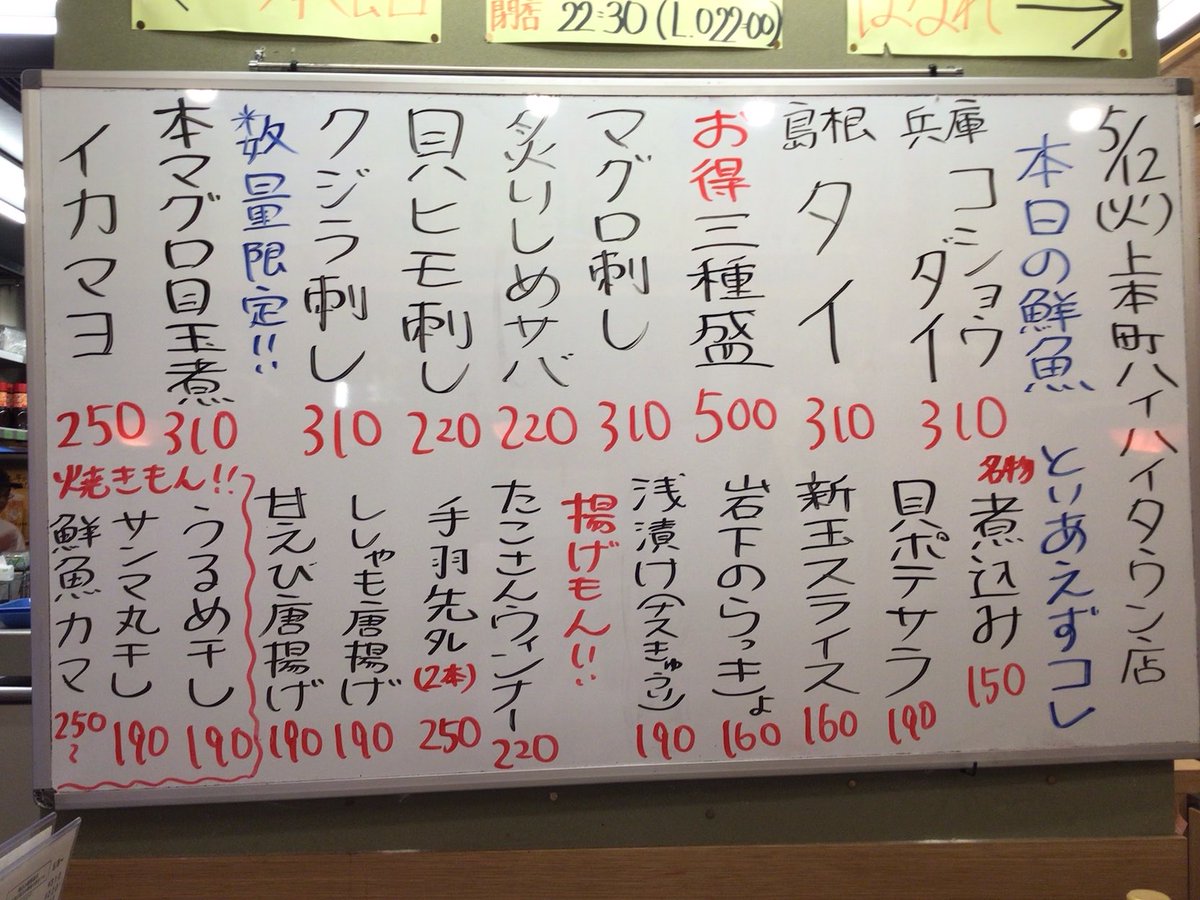 閉店 22:30 (L.O 22:00)
はなれ →
5/12 (火) 上本町ハイハイタウン店
本日の鮮魚
兵庫 コショウダイ 310
島根 タイ 310
お得 三種盛 500
マグロ刺し 310
炙りしめサバ 220
貝ヒモ刺し 220
クジラ刺し 310
*数量限定!!
本マグロ目玉煮 310
イカマヨ 250
とりあえずコレ
名物 煮込み 150
貝ポテサラ 190
新玉スライス 160
岩下のらっきょ 160
浅漬け(ナスきゅうり) 190
揚げもん!!
たこさんウィンナー 220
手羽先タレ (2本) 250
ししゃも唐揚げ 190
甘えび唐揚げ 190
焼きもん!!
うるめ干し 190
サンマ丸干し 190
鮮魚カマ 250〜